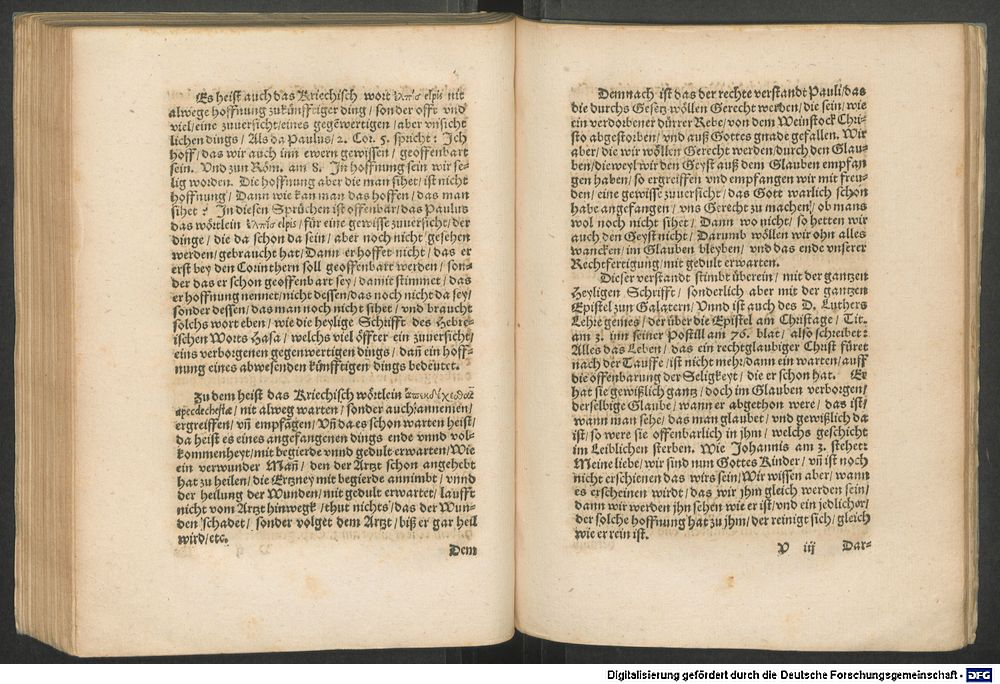 Es heist auch das Kriechisch wort ἐλπὶς elpis nit
alwege hoffnung zukünfftiger ding/ sonder offt vnd
viel/ eine zuuersicht/ eines gegẽwertigen/ aber vnsicht
lichen dings/ Als da Paulus/ 2. Cor. 5. spricht: Ich
hoff/ das wir auch inn ewern gewissen/ geoffenbart
sein. Vnd zun Röm. am 8. In hoffnung sein wir se-
lig worden. Die hoffnung aber die man sihet/ ist nicht
hoffnung/ Dann wie kan man das hoffen/ das man
sihet? In diesen Sprüchen ist offenbar/ das Paulus
das wörtlein ἐλπὶς elpis/ für eine gewisse zuuersicht/ der
dinge/ die da schon da sein/ aber noch nicht gesehen
werden/ gebraucht hat/ Dann er hoffet nicht/ das er
erst bey den Corinthern soll geoffenbart werden/ son-
der das er schon geoffenbart sey/ damit stimmet/ das
er hoffnung nennet/ nicht dessen/ das noch nicht da sey/
sonder dessen/ das man noch nicht sihet/ vnd braucht
solchs wort eben/ wie die heylige Schrifft des Hebre-
ischen Worts Hasa/ welchs viel öffter ein zuuersicht/
eins verborgenen gegenwertigen dings/ dañ ein hoff-
nung eines abwesenden künfftigen dings bedeutet.
Zu dem heist das Kriechisch wörtlein
apecdechestæ/ nit alweg warten/ sonder auch/ annemen/
ergreiffen/ vñ empfãgen/ Vñ da es schon warten heist/
da heist es eines angefangenen dings ende vnnd vol-
kommenheyt/ mit begierde vnnd gedult erwarten/ Wie
ein verwunder Mañ/ den der Artzt schon angehebt
hat zu heilen/ die Ertzney mit begierde annimbt/ vnnd
der heilung der Wunden/ mit gedult erwartet/ laufft
nicht vom Artzt hinwegk/ thut nichts/ das der Wun-
den schadet/ sonder volget dem Artzt/ biß er gar heil
wird/ etc.
Dem
Demnach ist das der rechte verstandt Pauli/ das
die durchs Gesetz wöllen Gerecht werden/ die sein/ wie
ein verdorbener dürrer Rebe/ von dem Weinstock Chri-
sto abgestorben/ vnd auß Gottes gnade gefallen. Wir
aber/ die wir wöllen Gerecht werden/ durch den Glau-
ben/ dieweyl wir den Geyst auß dem Glauben empfan
gen haben/ so ergreiffen vnd empfangen wir mit freu-
den/ eine gewisse zuuersicht/ das Gott warlich schon
habe angefangen/ vns Gerecht zu machen/ ob mans
wol noch nicht sihet/ Dann wo nicht/ so hetten wir
auch den Geyst nicht/ Darumb wöllen wir ohn alles
wancken/ im Glauben bleyben/ vnd das ende vnserer
Rechtfertigung/ mit gedult erwarten.
Dieser verstandt stimbt überein/ mit der gantzen
Heyligen Schrifft/ sonderlich aber mit der gantzen
Epistel zun Galatern/ Vnnd ist auch des D. Luthers
Lehre gemes/ der über die Epistel am Christage/ Tit.
am 3. inn seiner Postill am 76. blat/ also schreibet:
Alles das Leben/ das ein rechtglaubiger Christ füret
nach der Tauffe/ ist nicht mehr/ dann ein warten/ auff
die offenbarung der Seligkeyt/ die er schon hat. Er
hat sie gewißlich gantz/ doch im Glauben verborgen/
derselbige Glaube/ wann er abgethon were/ das ist/
wann man sehe/ das man glaubet/ vnd gewißlich da
ist/ so were sie offenbarlich in jhm/ welchs geschicht
im Leiblichen sterben. Wie Johannis am 3. stehet:
Meine liebe/ wir sind nun Gottes Kinder/ vñ ist noch
nicht erschienen das wirs sein/ Wir wissen aber/ wann
es erscheinen wirdt/ das wir jhm gleich werden sein/
dann wir werden jhn sehen wie er ist/ vnd ein jedlicher/
der solche hoffnung hat zu jhm/ der reinigt sich/ gleich
wie er rein ist.
V iij Dar-
Digitalisierung gefördert durch die Deutsche Forschungsgemeinschaft - DFG